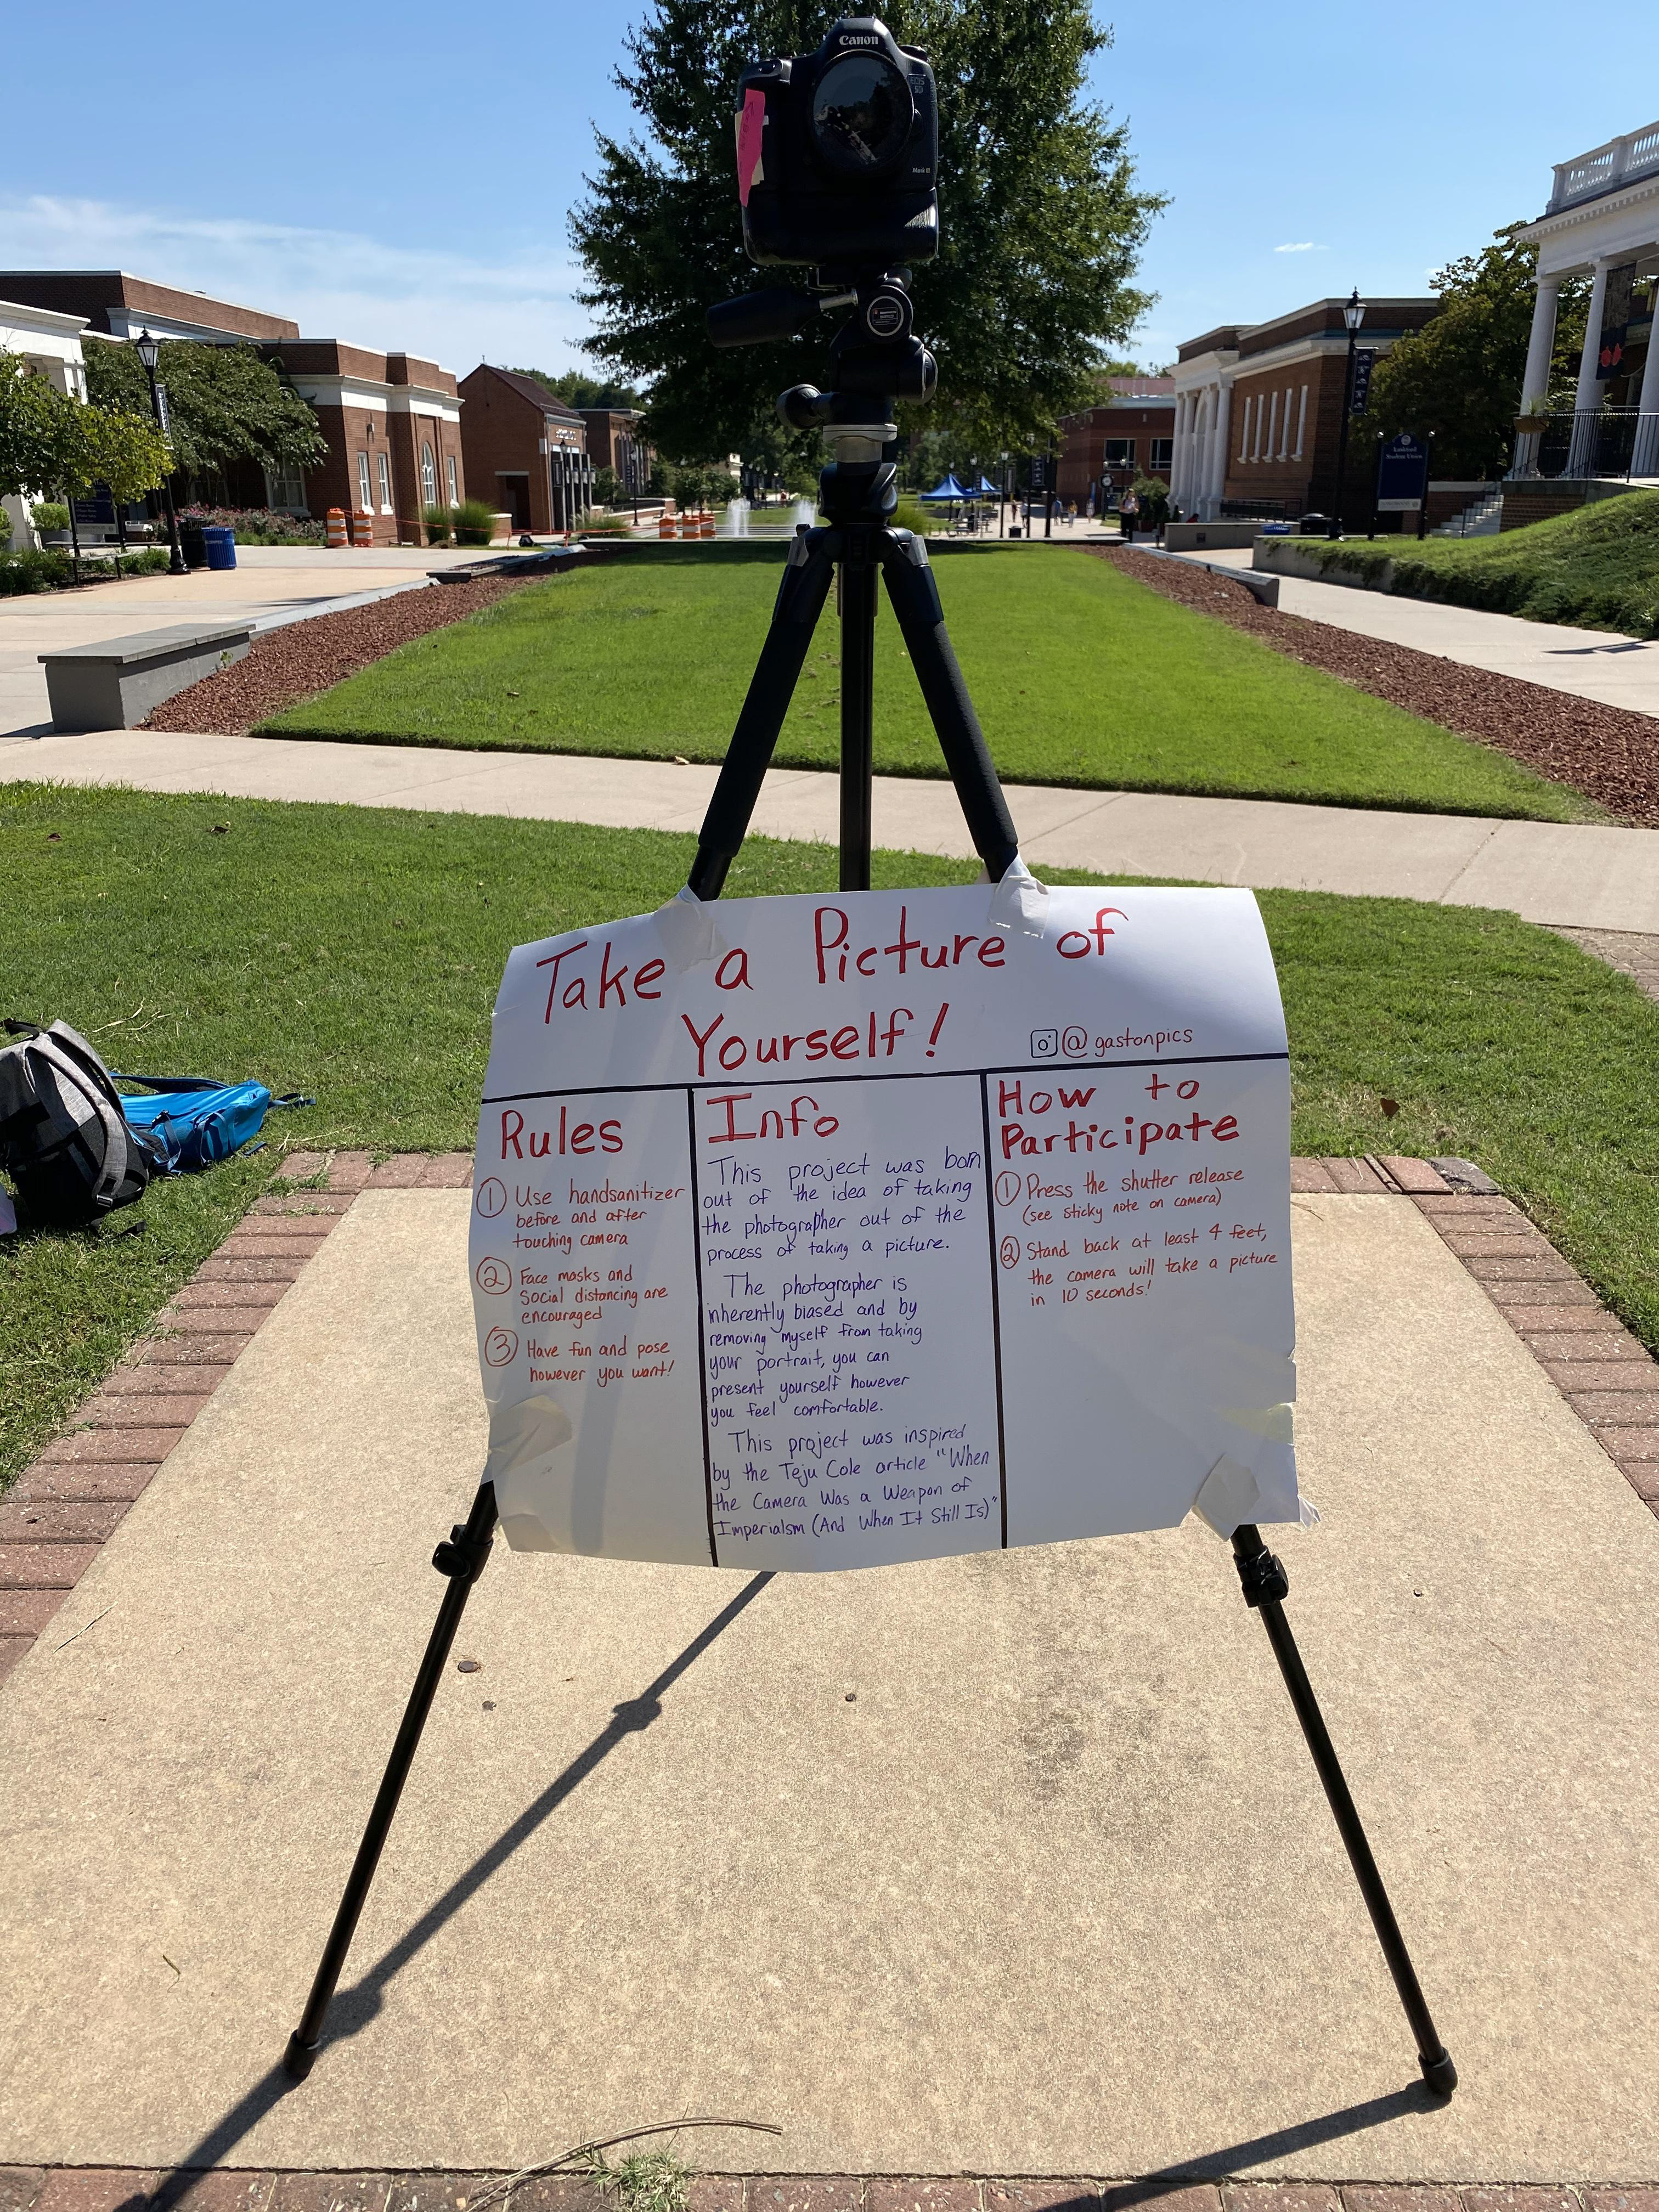 Canon
EOS
5D
Mark II
Lankford
Student Union
Take a Picture of
Yourself!
@gastonpics
Rules
① Use handsanitizer
before and after
touching camera
② Face masks and
Social distancing are
encouraged
③ Have fun and pose
however you want!
Info
This project was born
out of the idea of taking
the photographer out of the
process of taking a picture.
The photographer is
inherently biased and by
removing myself from taking
your portrait, you can
present yourself however
you feel comfortable.
This project was inspired
by the Teju Cole article "When
the Camera Was a Weapon of
Imperialsm (And When It Still Is)"
How to
Participate
① Press the shutter release
(see sticky note on camera)
② Stand back at least 4 feet,
the camera will take a picture
in 10 seconds!